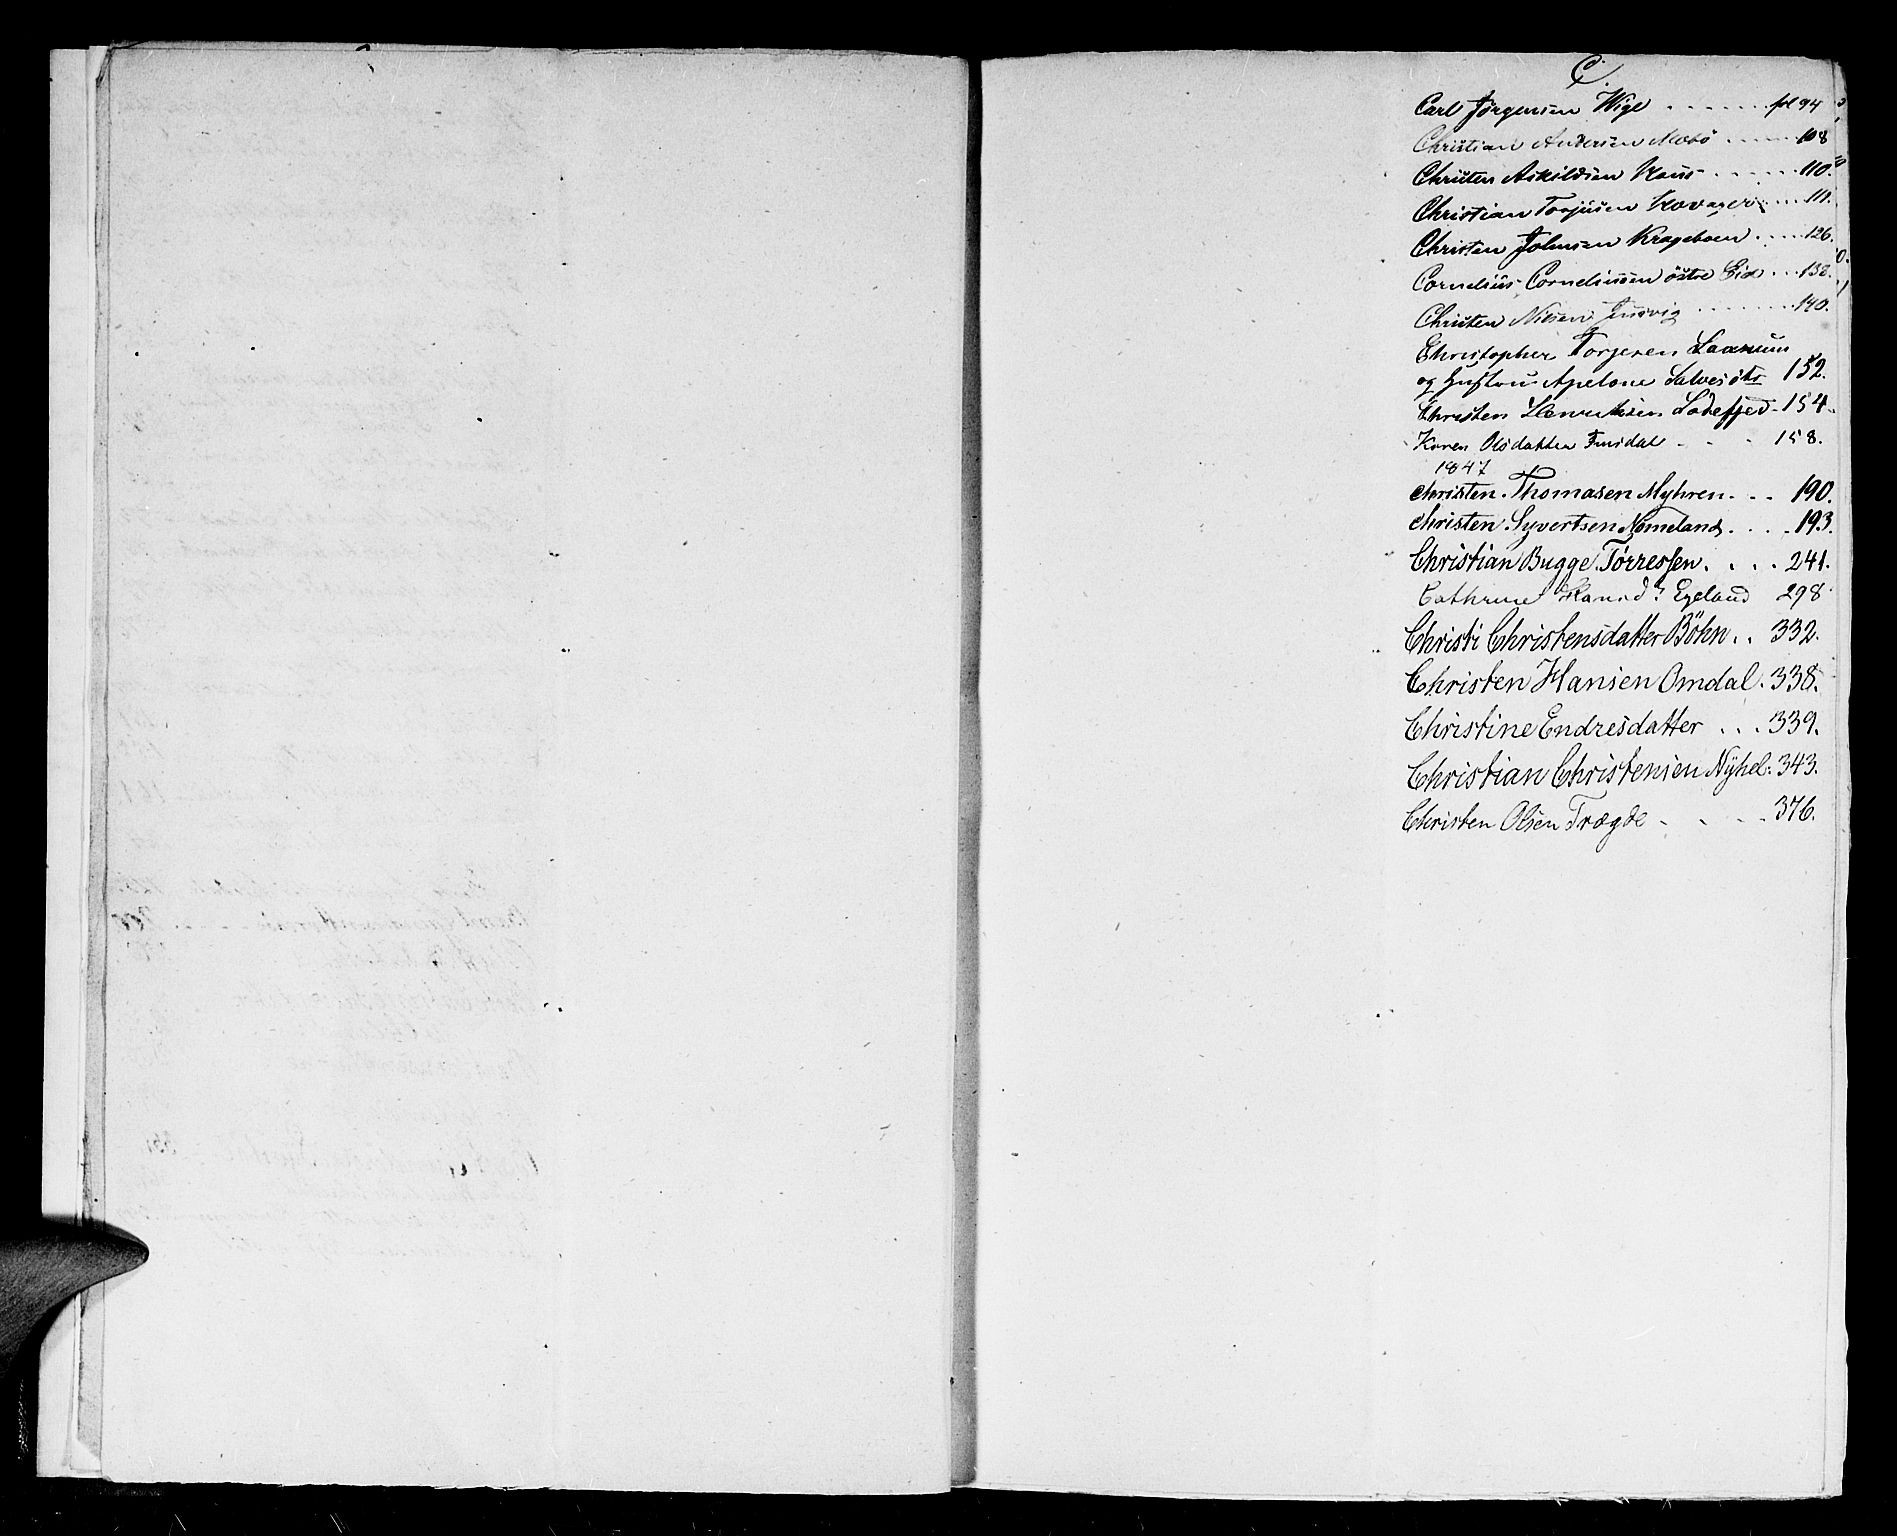 C.
Carl Jörgensen Wige . . . . . . . fol 94
Christian Andersen Mebö . . . . . 108
Christen Askildsen Haus . . . . . . 110.
Christian Torjusen Kovager . . . . 111.
Christen Johnsen Krageboen . . . . . 126.
Cornelius Corneliussen östre Eie . . . 138.
Christen Nilsen Jusvig . . . . . . . 140.
Christopher Torjesen Laanum
og Hustru Apelone Salvesdtr 152.
Christen Henriksen Lodefjed . 154.
Karen Olsdatter Finsdal . . . 158.
1847
Christen Thomasen Myhren . . . 190.
Christen Syvertsen Nomeland . . . . 193.
Christian Bugge Törressen . . . . 241.
Cathrine Hansd. Egeland 298
Christi Christensdatter Böhn . . 332.
Christen Hansen Omdal . 338.
Christine Endresdatter . . . 339.
Christian Christensen Nÿhel . 343.
Christen Olsen Trægde . . . . 376.